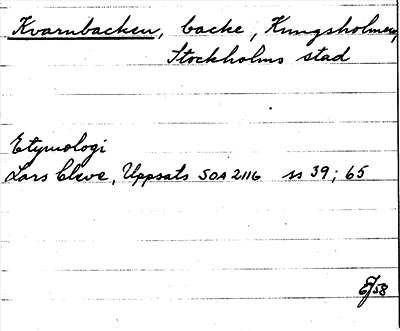 Kvarnbacken, backe, Kungsholmen,
Stockholms stad
Etymologi
Lars Cleve, Uppsats SOA 2116 ss 39; 65
/58